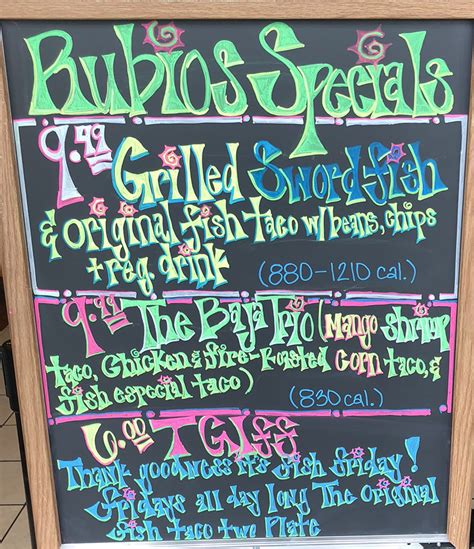 Rubios Specials
9.49 Grilled Swordfish
& original fish taco w/beans, chips
+ reg. drink (880-1210 cal.)
9.49 The Baja Trio (Mango shrimp
taco, Chicken & fire-Roasted Corn taco, &
fish especial taco) (830 cal.)
6.00 TGIFF
Thank goodness it's fish friday!
fridays all day long The original
fish taco two Plate